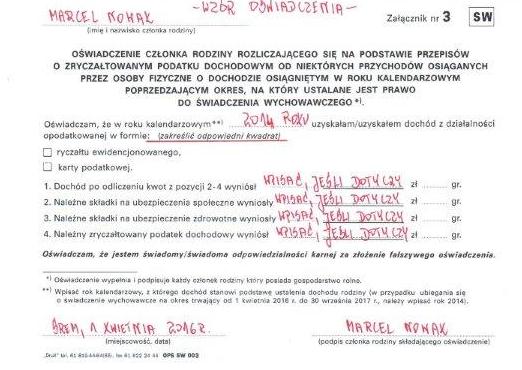 MARCEL NOWAK
-WZÓR OŚWIADCZENIA-
Załącznik nr 3 SW
(imię i nazwisko członka rodziny)
OŚWIADCZENIE CZŁONKA RODZINY ROZLICZAJĄCEGO SIĘ NA PODSTAWIE PRZEPISÓW
O ZRYCZAŁTOWANYM PODATKU DOCHODOWYM OD NIEKTÓRYCH PRZYCHODÓW OSIĄGANYCH
PRZEZ OSOBY FIZYCZNE O DOCHODZIE OSIĄGNIĘTYM W ROKU KALENDARZOWYM
POPRZEDZAJĄCYM OKRES, NA KTÓRY USTALANE JEST PRAWO
DO ŚWIADCZENIA WYCHOWAWCZEGO *).
Oświadczam, że w roku kalendarzowym**) 2014 ROKU uzyskałam/uzyskałem dochód z działalności
opodatkowanej w formie: (zakreślić odpowiedni kwadrat)
☐ ryczałtu ewidencjonowanego,
☐ karty podatkowej.
1. Dochód po odliczeniu kwot z pozycji 2-4 wyniósł WPISAĆ, JEŚLI DOTYCZY zł .......... gr.
2. Należne składki na ubezpieczenia społeczne wyniosły WPISAĆ, JEŚLI DOTYCZY zł .......... gr.
3. Należne składki na ubezpieczenie zdrowotne wyniosły WPISAĆ, JEŚLI DOTYCZY zł .......... gr.
4. Należny zryczałtowany podatek dochodowy wyniósł WPISAĆ, JEŚLI DOTYCZY zł .......... gr.
Oświadczam, że jestem świadomy/świadoma odpowiedzialności karnej za złożenie fałszywego oświadczenia.
*) Oświadczenie wypełnia i podpisuje każdy członek rodziny który posiada gospodarstwo rolne.
**) Wpisać rok kalendarzowy, z którego dochód stanowi podstawę ustalenia dochodu rodziny (w przypadku ubiegania się
o świadczenie wychowawcze na okres trwający od 1 kwietnia 2016 r. do 30 września 2017 r., należy wpisać rok 2014).
ŚREM, 1 KWIETNIA 2016r.
MARCEL NOWAK
(miejscowość, data)
(podpis członka rodziny składającego oświadczenie)
OPS SW 003